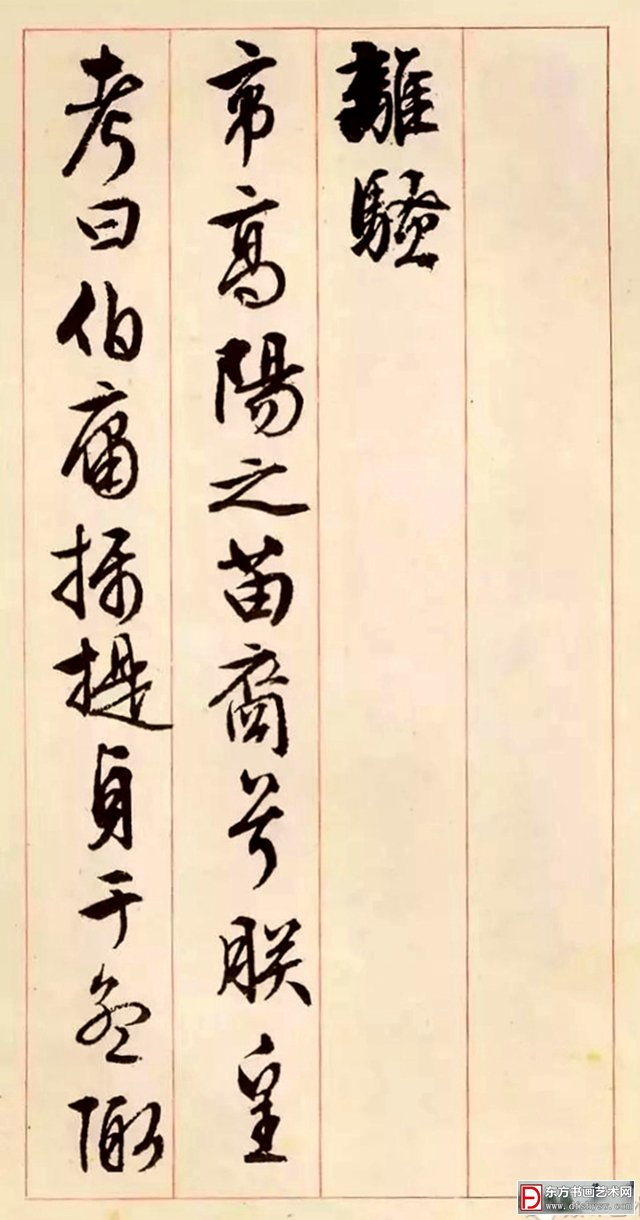 離騷
帝高陽之苗裔兮朕皇
考曰伯庸攝提貞于孟陬
东方书画艺术网
www.dfshysw.com